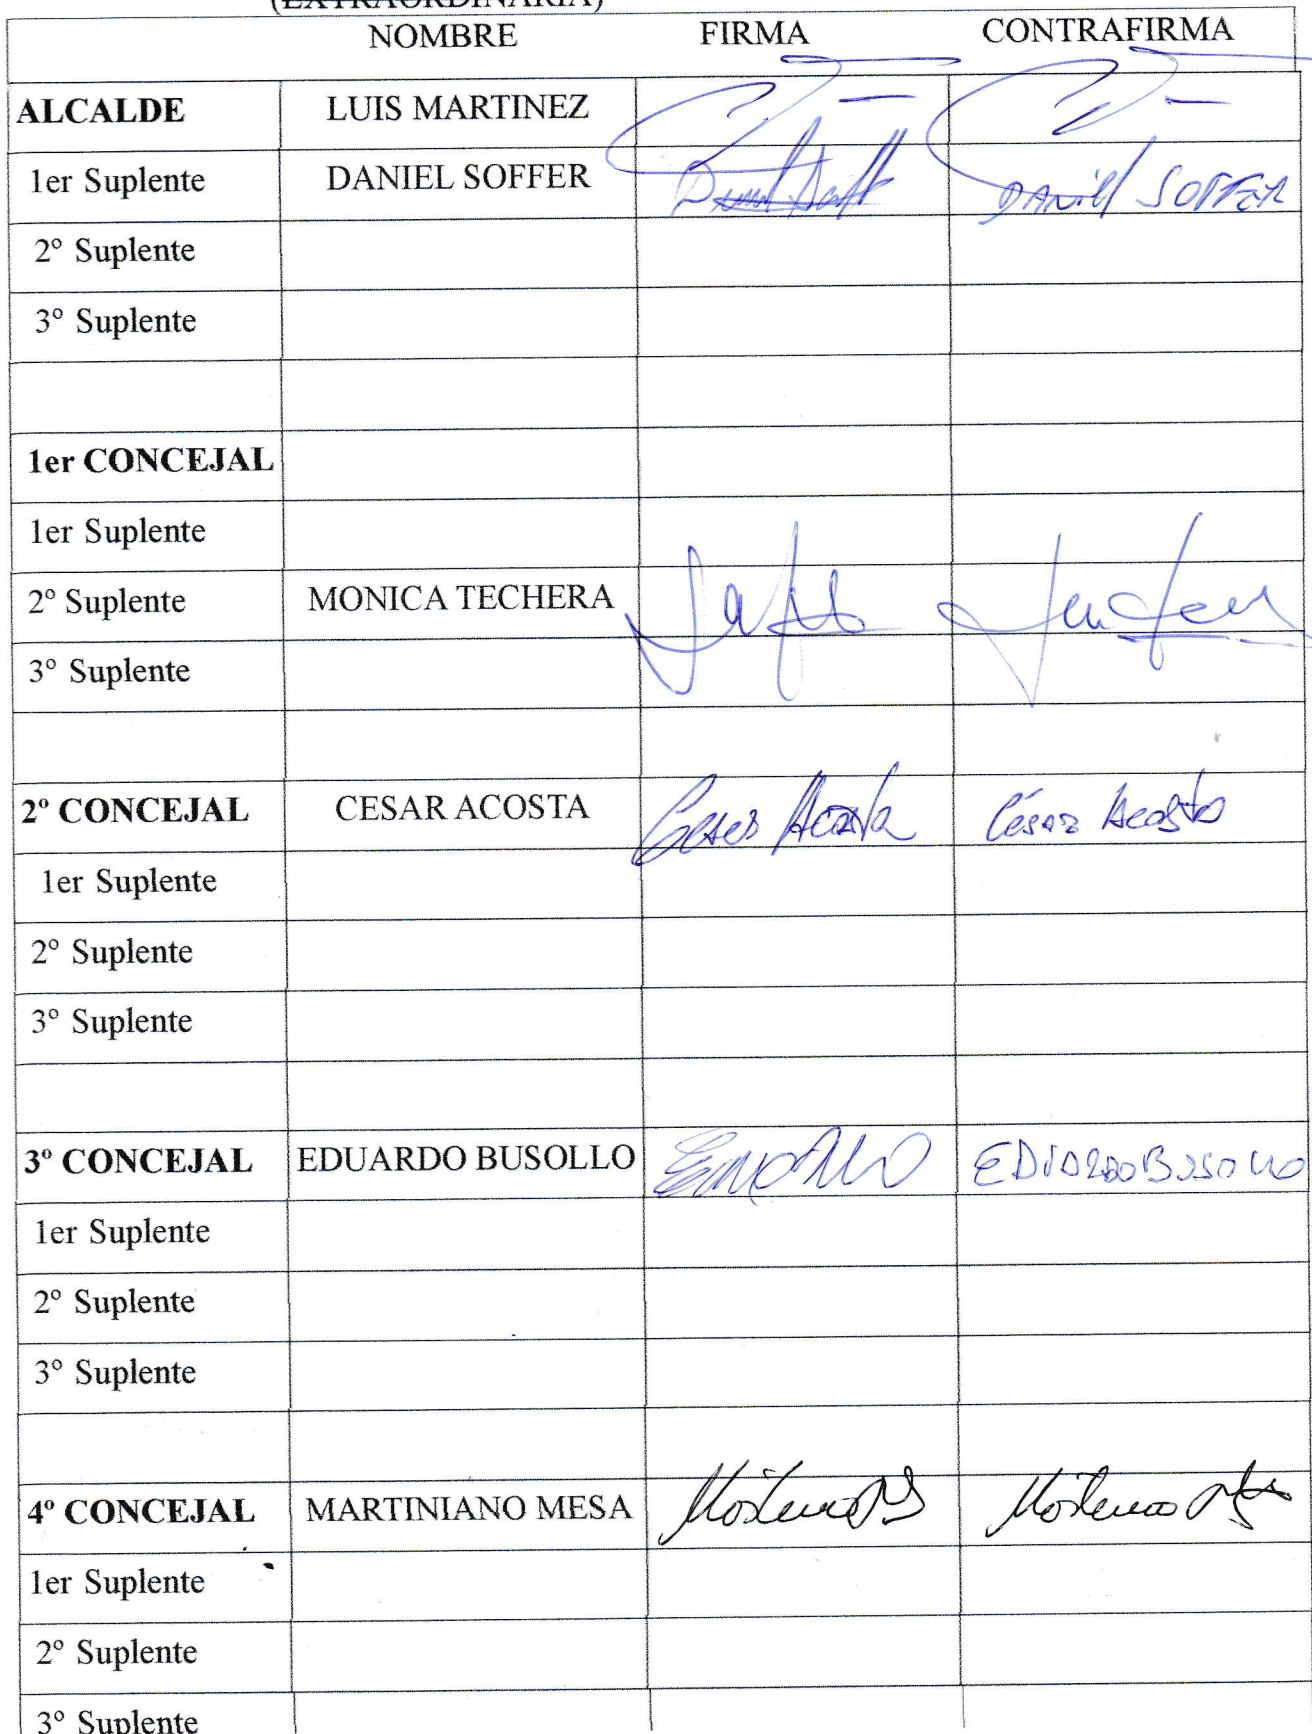 (EXTRAORDINARIA)
NOMBRE FIRMA CONTRAFIRMA
ALCALDE LUIS MARTINEZ
1er Suplente DANIEL SOFFER DANiEl SOFFER
2º Suplente
3º Suplente
1er CONCEJAL
1er Suplente
2º Suplente MONICA TECHERA
3º Suplente
2º CONCEJAL CESAR ACOSTA Cesar Acosta César Acosta
1er Suplente
2º Suplente
3º Suplente
3º CONCEJAL EDUARDO BUSOLLO EDUARDO BUSOLLO
1er Suplente
2º Suplente
3º Suplente
4º CONCEJAL MARTINIANO MESA
1er Suplente
2º Suplente
3º Suplente